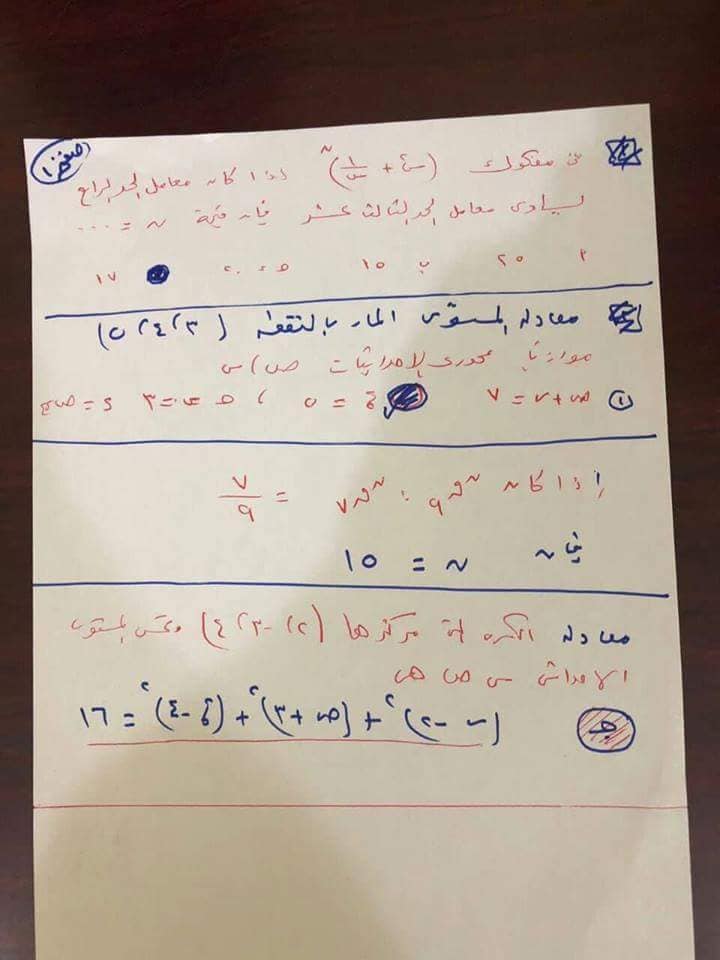 صفحة ١
فى مفكوك (س٤ + ١/س)^ن اذا كان معامل الحد الرابع
يساوى معامل الحد الثالث عشر فإن قيمة ن = ...
٢٥ ب ١٥ ١٧
معادلة المستوى المار بالنقطة (٣، ٤، ٥)
موازياً محورى الإحداثيات ص، س
① ص + س = ٧ ع = ٥ ، هـ س = ٣ د = ص
إذا كان ن ق ٩ : ن ق ٧ = ٧/٩
فإن ن = ١٥
معادلة الكره التى مركزها (٢، -٣، ٤) وتمس المستوى
الإحداثى س ص هى
جـ (س - ٢)^٢ + (ص + ٣)^٢ + (ع - ٤)^٢ = ١٦